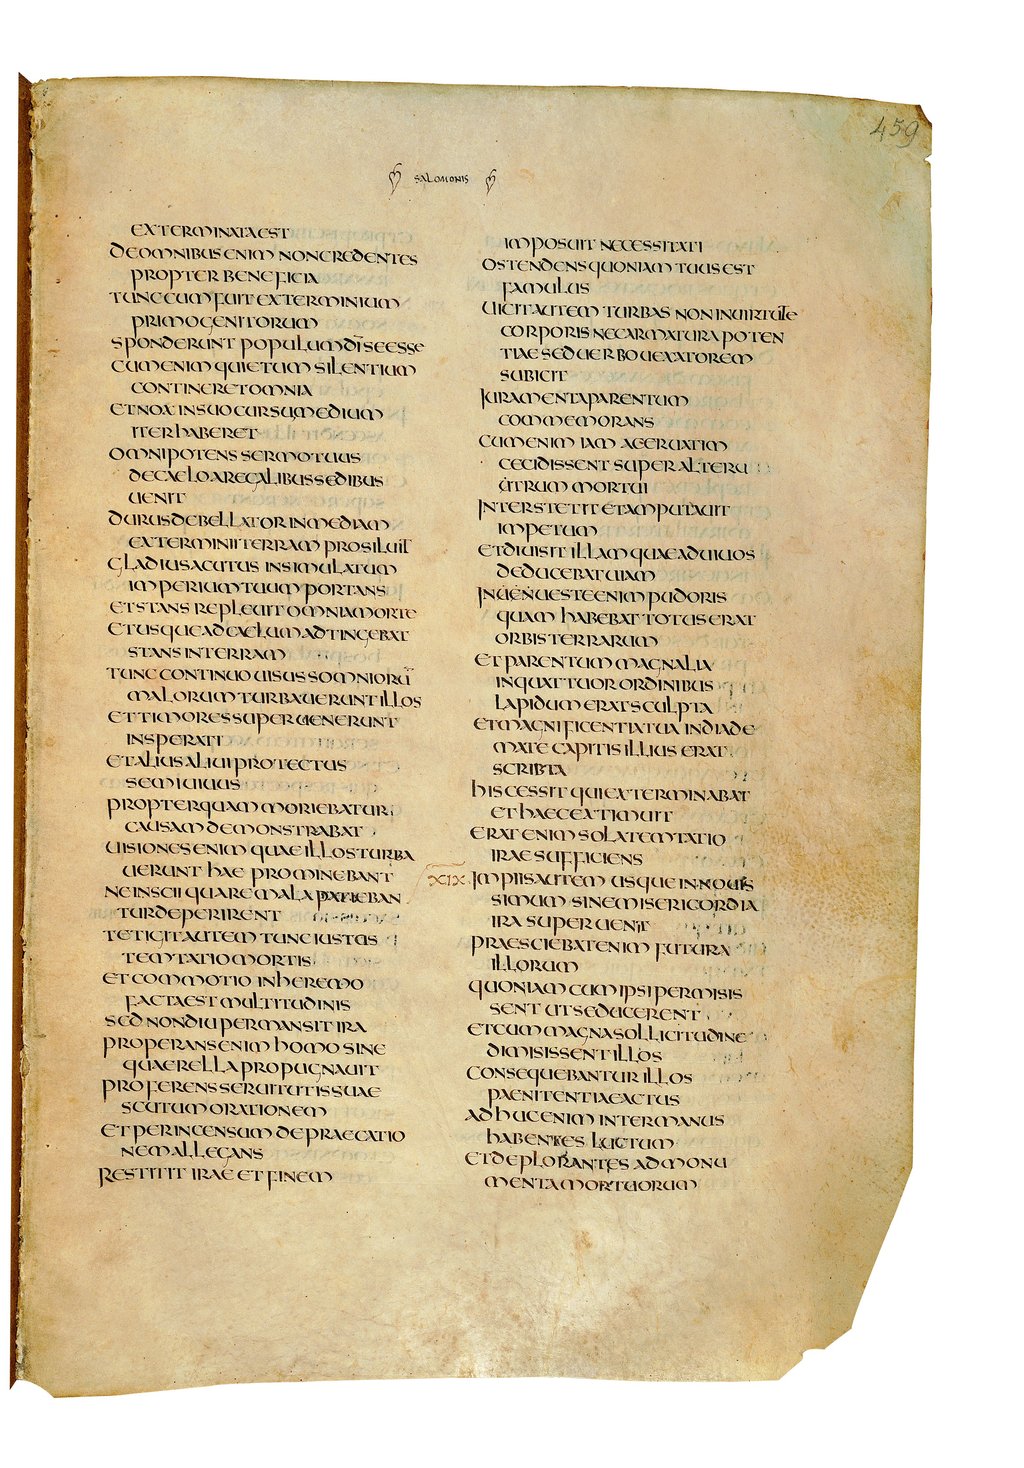 459
SALOMONIS
EXTERMINATA EST
DE OMNIBUS ENIM NON CREDENTES
PROPTER BENEFICIA
TUNC CUM FUIT EXTERMINIUM
PRIMOGENITORUM
SPONDERUNT POPULUM DI SE ESSE
CUM ENIM QUIETUM SILENTIUM
CONTINERET OMNIA
ET NOX IN SUO CURSU MEDIUM
ITER HABERET
OMNIPOTENS SERMO TUUS
DE CAELO A REGALIBUS SEDIBUS
UENIT
DURUS DEBELLATOR IN MEDIAM
EXTERMINII TERRAM PROSILUIT
GLADIUS ACUTUS INSIMULATUM
IMPERIUM TUUM PORTANS
ET STANS REPLEUIT OMNIA MORTE
ET USQUE AD CAELUM ADTINGEBAT
STANS IN TERRAM
TUNC CONTINUO UISUS SOMNIORŪ
MALORUM TURBAUERUNT ILLOS
ET TIMORES SUPERUENERUNT
INSPERATI
ET ALIUS ALIUI PROTECTUS
SEMIUIUUS
PROPTER QUAM MORIEBATUR
CAUSAM DEMONSTRABAT
UISIONES ENIM QUAE ILLOS TURBA
UERUNT HAE PROMINEBANT
NE INSCII QUARE MALA PATIEBAN
TUR DEPERIRENT
TETIGIT AUTEM TUNC IUSTOS
TEMTATIO MORTIS
ET COMMOTIO IN HEREMO
FACTA EST MULTITUDINIS
SED NON DIU PERMANSIT IRA
PROPERANS ENIM HOMO SINE
QUAERELLA PROPUGNAUIT
PROFERENS SERUITUTIS SUAE
SCUTUM ORATIONEM
ET PER INCENSUM DEPRAECATIO
NEM ALLEGANS
RESTITIT IRAE ET FINEM
IMPOSUIT NECESSITATI
OSTENDENS QUONIAM TUUS EST
FAMULUS
UICIT AUTEM TURBAS NON IN UIRTUTE
CORPORIS NEC ARMATURA POTEN
TIAE SED UERBO UEXATOREM
SUBICIT
IURAMENTA PARENTUM
COMMEMORANS
CUM ENIM IAM ACERUATIM
CECIDISSENT SUPER ALTERU
UTRUM MORTUI
INTERSTETIT ET AMPUTAUIT
IMPETUM
ET DIUISIT ILLAM QUAE AD UIUOS
DEDUCEBAT UIAM
IN UESTE ENIM PUDORIS
QUAM HABEBAT TOTUS ERAT
ORBIS TERRARUM
ET PARENTUM MAGNALIA
IN QUATTUOR ORDINIBUS
LAPIDUM ERAT SCULPTA
ET MAGNIFICENTIA TUA IN DIADE
MATE CAPITIS ILLIUS ERAT
SCRIBTA
HIS CESSIT QUI EXTERMINABAT
ET HAEC EXTIMUIT
ERAT ENIM SOLA TEMTATIO
IRAE SUFFICIENS
XIX IMPIIS AUTEM USQUE IN NOUIS
SIMUM SINE MISERICORDIA
IRA SUPERUENIT
PRAESCIEBAT ENIM FUTURA
ILLORUM
QUONIAM CUM IPSI PERMISIS
SENT UT SE DUCERENT
ET CUM MAGNA SOLLICITUDINE
DIMISISSENT ILLOS
CONSEQUEBANTUR ILLOS
PAENITENTIAE ACTUS
ADHUC ENIM INTER MANUS
HABENTES LUCTUM
ET DEPLORANTES AD MONU
MENTA MORTUORUM